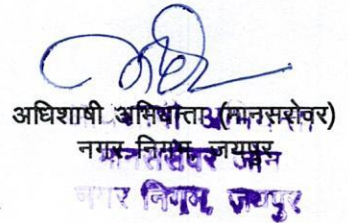 अधिशाषी अभियन्ता (मानसरोवर)
नगर निगम, जयपुर
मानसरोवर जोन
नगर निगम, जयपुर